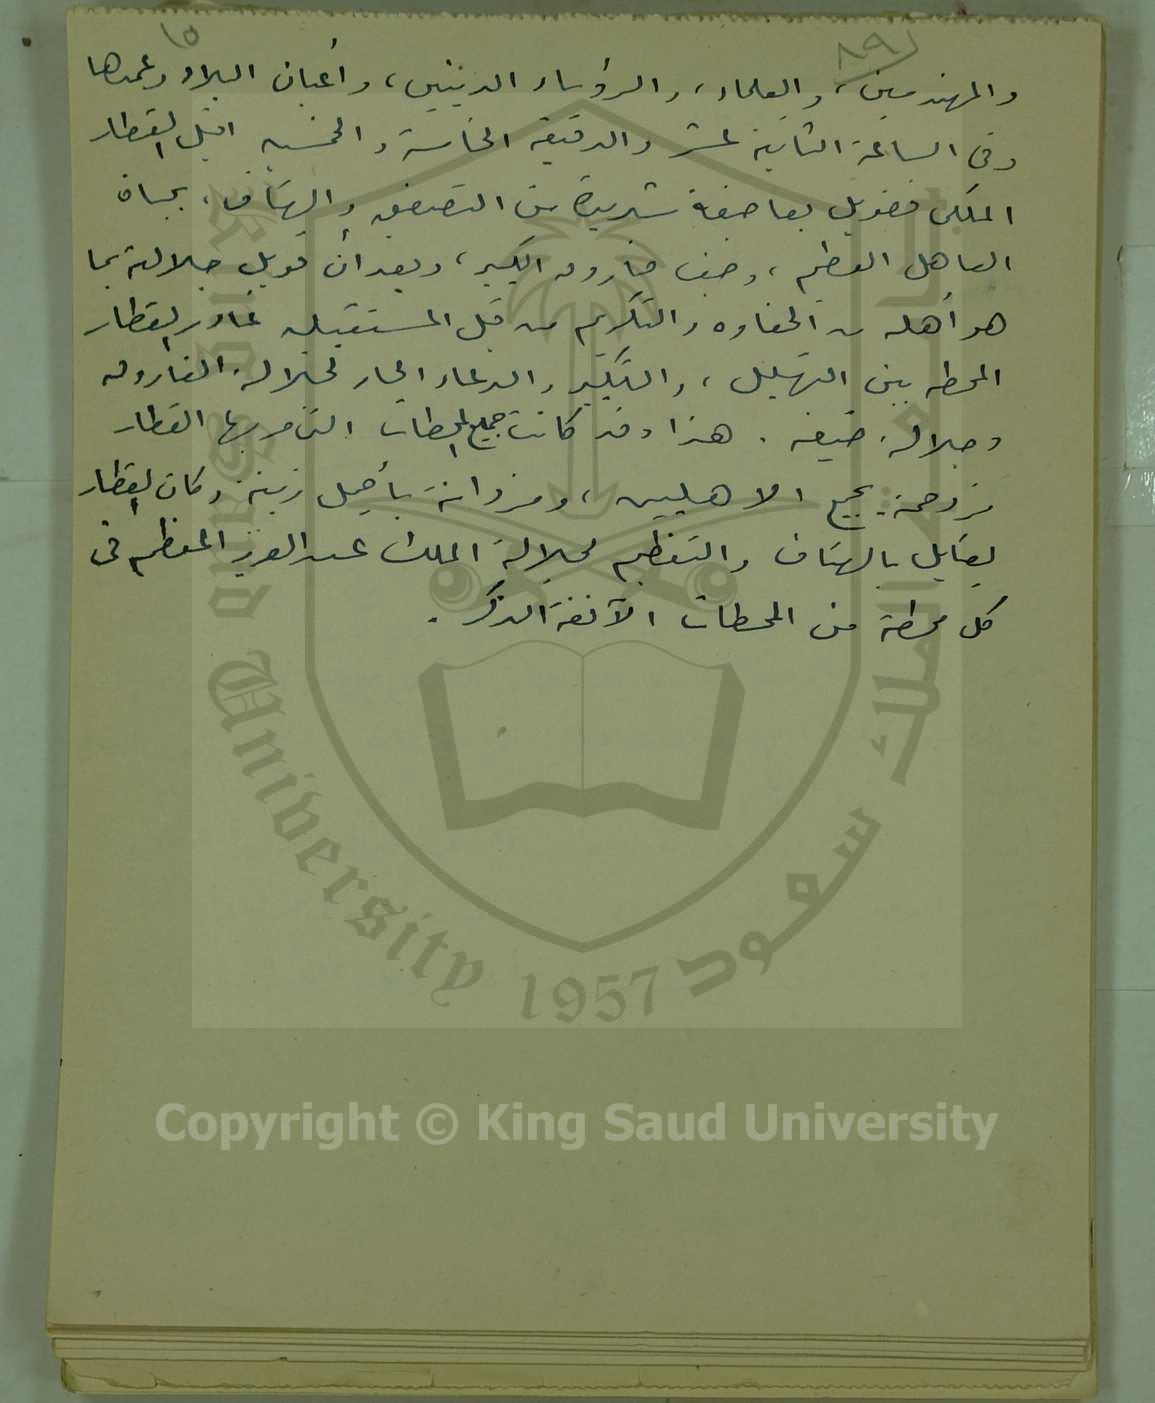 ١٥
٨٩
والمهندسين، والعلماء، والرؤساء الدينيين، وأعيان البلاد وعمدها
وفى الساعة الثانية عشر والدقيقه الخامسة والخمسين اقبل القطار
الملكى فقوبل بعاصفة شديدة من التصفيق والهتاف، بحياة
العاهل العظيم، وضيف فاروق الكبير، وبعد أن قوبل جلالته بما
هو أهله من الحفاوه والتكريم من قبل المستقبلين غادر القطار
المحطه بين التهليل، والتكبير والدعاء الحار لجلالة الفاروق
وجلالة ضيفه. هذا وقد كانت جميع المحطات التى مر بها القطار
مزدحمة بجميع الاهليين، ومزدانة بأجمل زينة وكان القطار
يقابل بالهتاف والتعظيم لجلالة الملك عبد العزيز المعظم فى
كل محطة من المحطات الآنفة الذكر.
King Saud University 1957
جامعة الملك سعود
Copyright © King Saud University